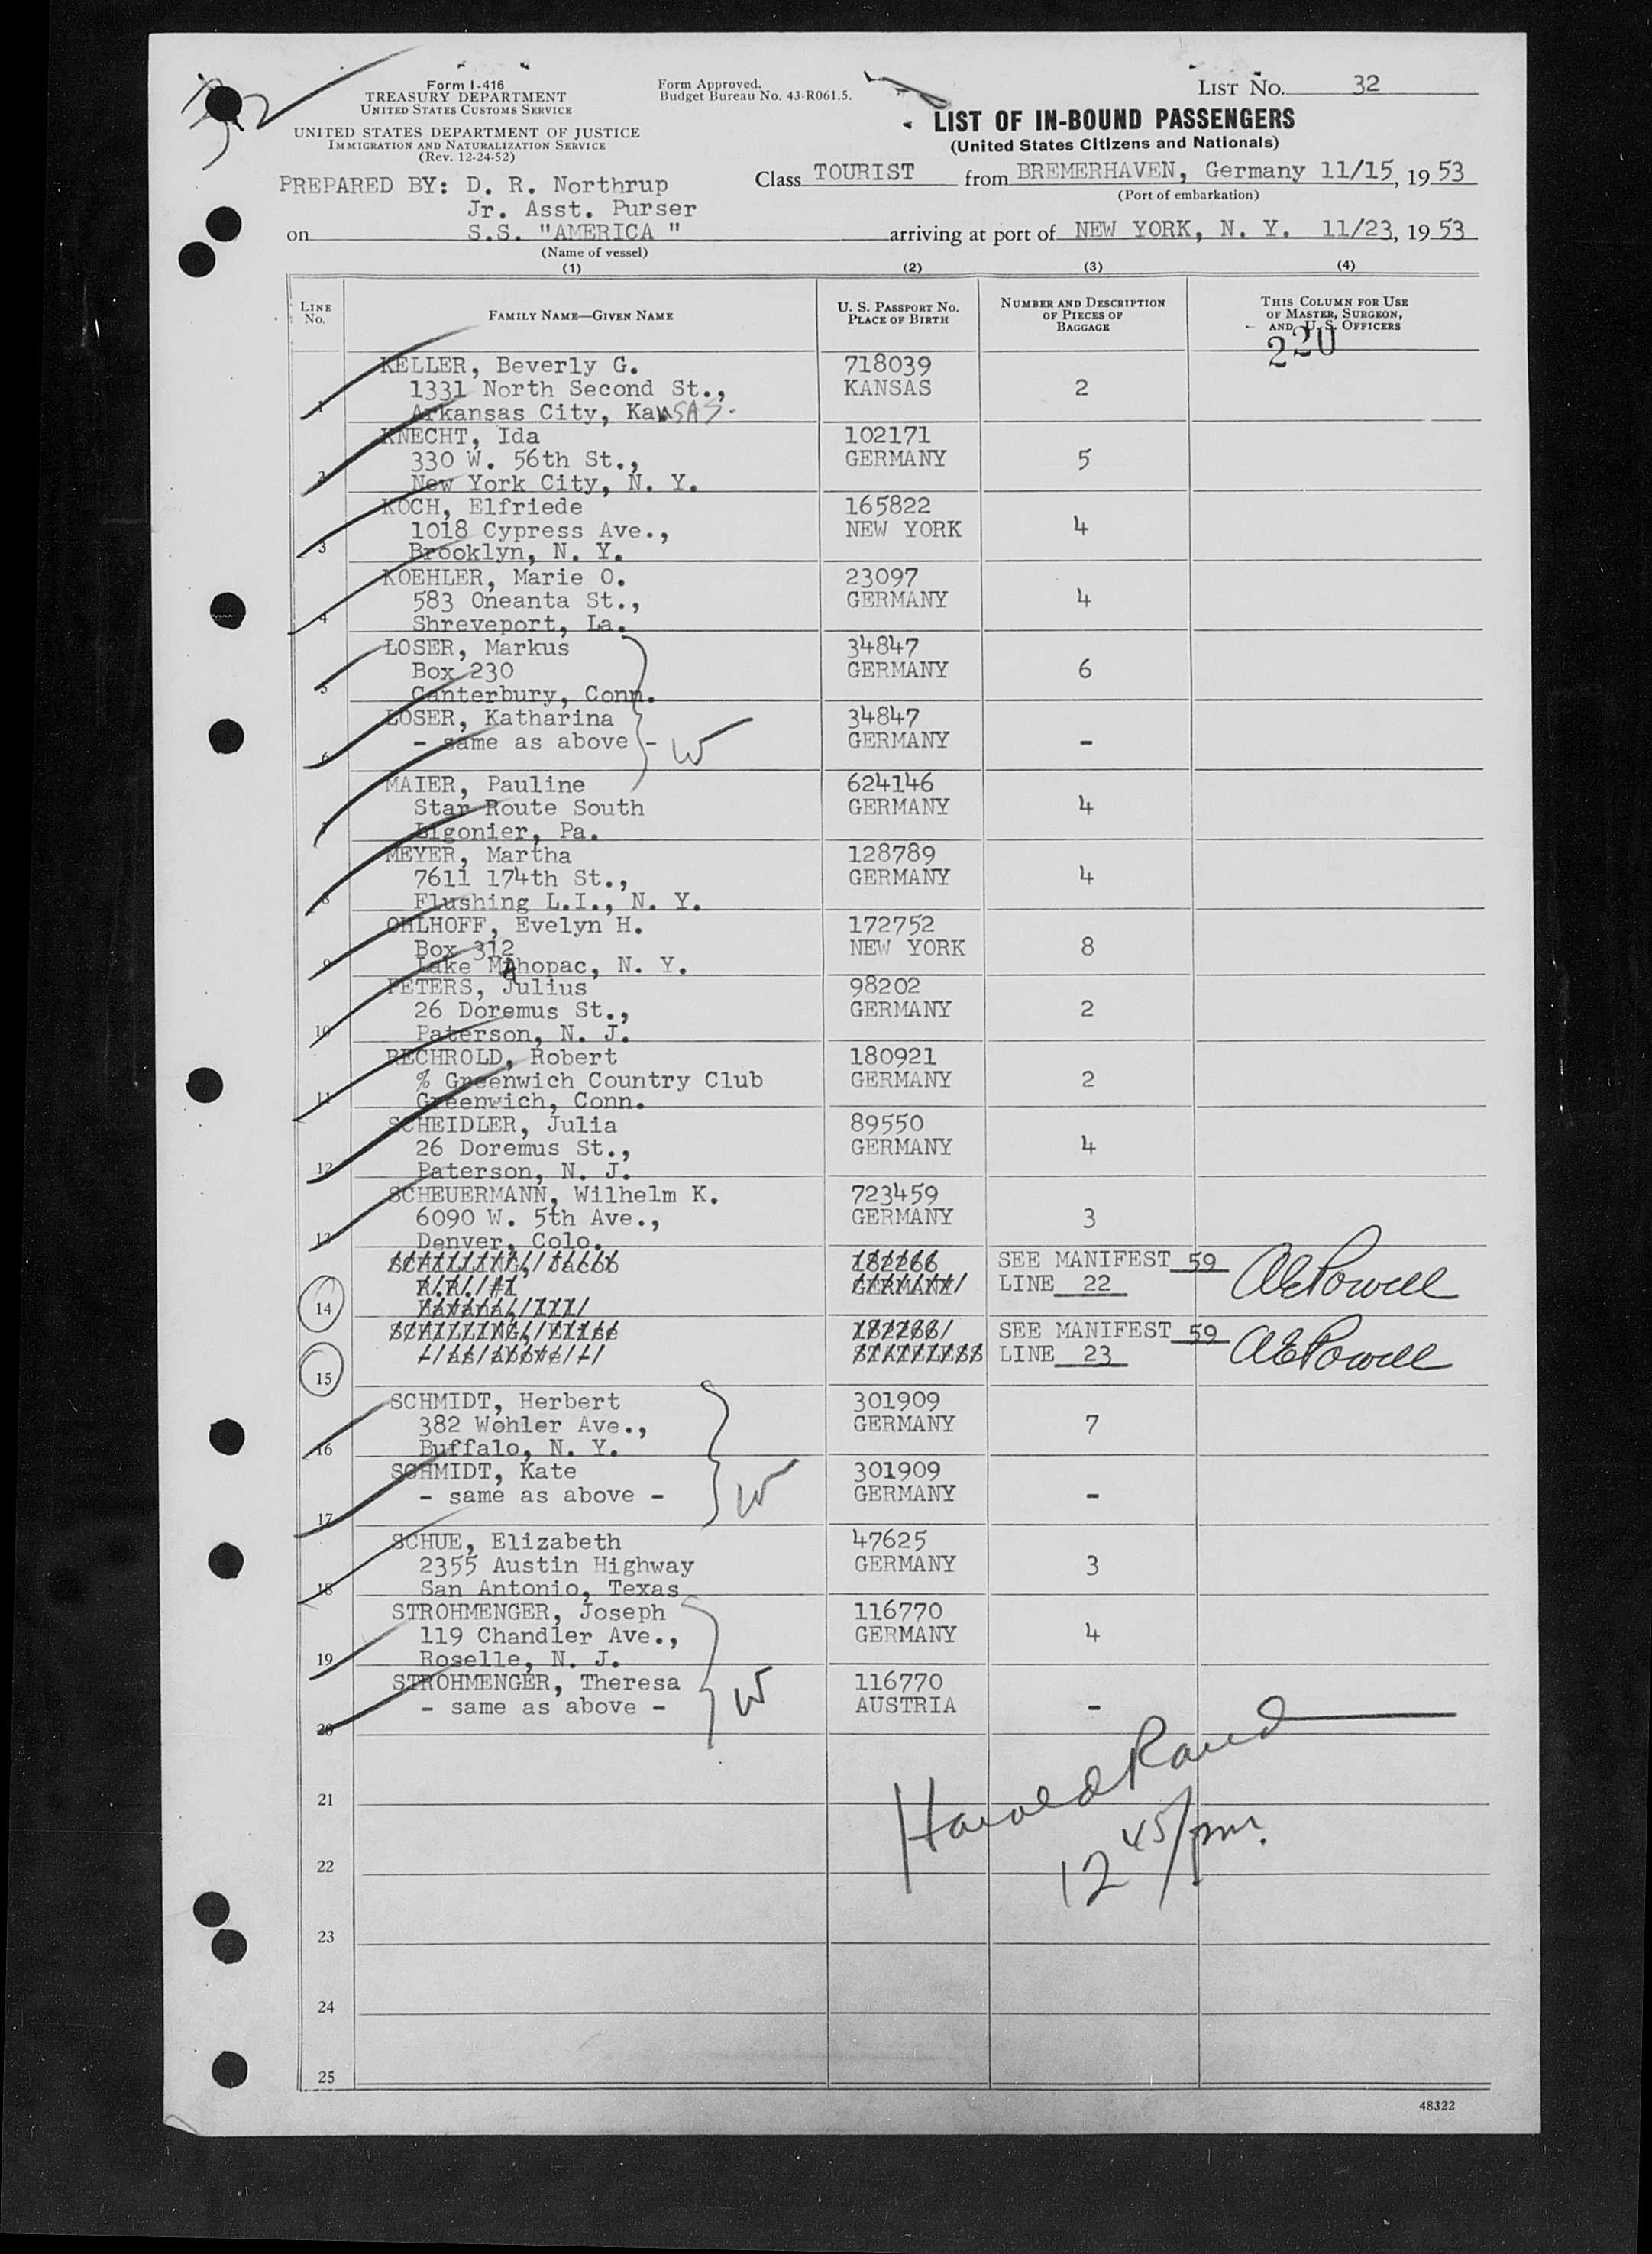 32
Form I-416
TREASURY DEPARTMENT
UNITED STATES CUSTOMS SERVICE
UNITED STATES DEPARTMENT OF JUSTICE
IMMIGRATION AND NATURALIZATION SERVICE
(Rev. 12-24-52)
Form Approved.
Budget Bureau No. 43-R061.5.
LIST No. 32
LIST OF IN-BOUND PASSENGERS
(United States Citizens and Nationals)
PREPARED BY: D. R. Northrup
Jr. Asst. Purser
Class TOURIST from BREMERHAVEN, Germany 11/15, 19 53
(Port of embarkation)
on S.S. "AMERICA " arriving at port of NEW YORK, N. Y. 11/23, 19 53
(Name of vessel)
(1) (2) (3) (4)
LINE No. FAMILY NAME—GIVEN NAME U. S. PASSPORT No. PLACE OF BIRTH NUMBER AND DESCRIPTION OF PIECES OF BAGGAGE THIS COLUMN FOR USE OF MASTER, SURGEON, AND U. S. OFFICERS
220
KELLER, Beverly G. 718039
1331 North Second St., KANSAS 2
1 Arkansas City, KaNSAS.
KNECHT, Ida 102171
330 W. 56th St., GERMANY 5
2 New York City, N. Y.
KOCH, Elfriede 165822
1018 Cypress Ave., NEW YORK 4
3 Brooklyn, N. Y.
KOEHLER, Marie O. 23097
583 Oneanta St., GERMANY 4
4 Shreveport, La.
LOSER, Markus 34847
Box 230 GERMANY 6
5 Canterbury, Conn.
LOSER, Katharina 34847
- same as above - W GERMANY -
6
MAIER, Pauline 624146
Star Route South GERMANY 4
7 Ligonier, Pa.
MEYER, Martha 128789
7611 174th St., GERMANY 4
8 Flushing L.I., N. Y.
OHLHOFF, Evelyn H. 172752
Box 312 NEW YORK 8
9 Lake MAhopac, N. Y.
PETERS, Julius 98202
26 Doremus St., GERMANY 2
10 Paterson, N. J.
RECHROLD, Robert 180921
% Greenwich Country Club GERMANY 2
11 Greenwich, Conn.
SCHEIDLER, Julia 89550
26 Doremus St., GERMANY 4
12 Paterson, N. J.
SCHEUERMANN, Wilhelm K. 723459
6090 W. 5th Ave., GERMANY 3
13 Denver, Colo.
SCHILLING, Jacob 182266 SEE MANIFEST 59
R.R. #1 GERMANY LINE 22 AEPowell
14 Havana, Ill.
SCHILLING, Elise 182266 SEE MANIFEST 59
- as above - STATELESS LINE 23 AEPowell
15
SCHMIDT, Herbert 301909
382 Wohler Ave., GERMANY 7
16 Buffalo, N. Y.
SCHMIDT, Kate 301909
- same as above - W GERMANY -
17
SCHUE, Elizabeth 47625
2355 Austin Highway GERMANY 3
18 San Antonio, Texas
STROHMENGER, Joseph 116770
119 Chandler Ave., GERMANY 4
19 Roselle, N. J.
STROHMENGER, Theresa 116770
- same as above - W AUSTRIA -
20
Harold Rand
21
12 45/pm.
22
23
24
25
48322